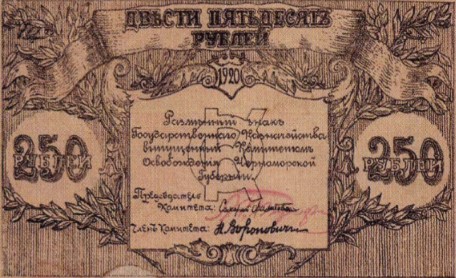 ДВѢСТИ ПЯТЬДЕСЯТЪ
РУБЛЕЙ
1920
Размѣнный знакъ
Государственнаго Казначейства
выпущенный Комитетомъ
Освобожденія Черноморской
Губерніи.
250
РУБЛЕЙ
250
РУБЛЕЙ
Предсѣдатель
Комитета:
Членъ Комитета: Н. Вороновичъ